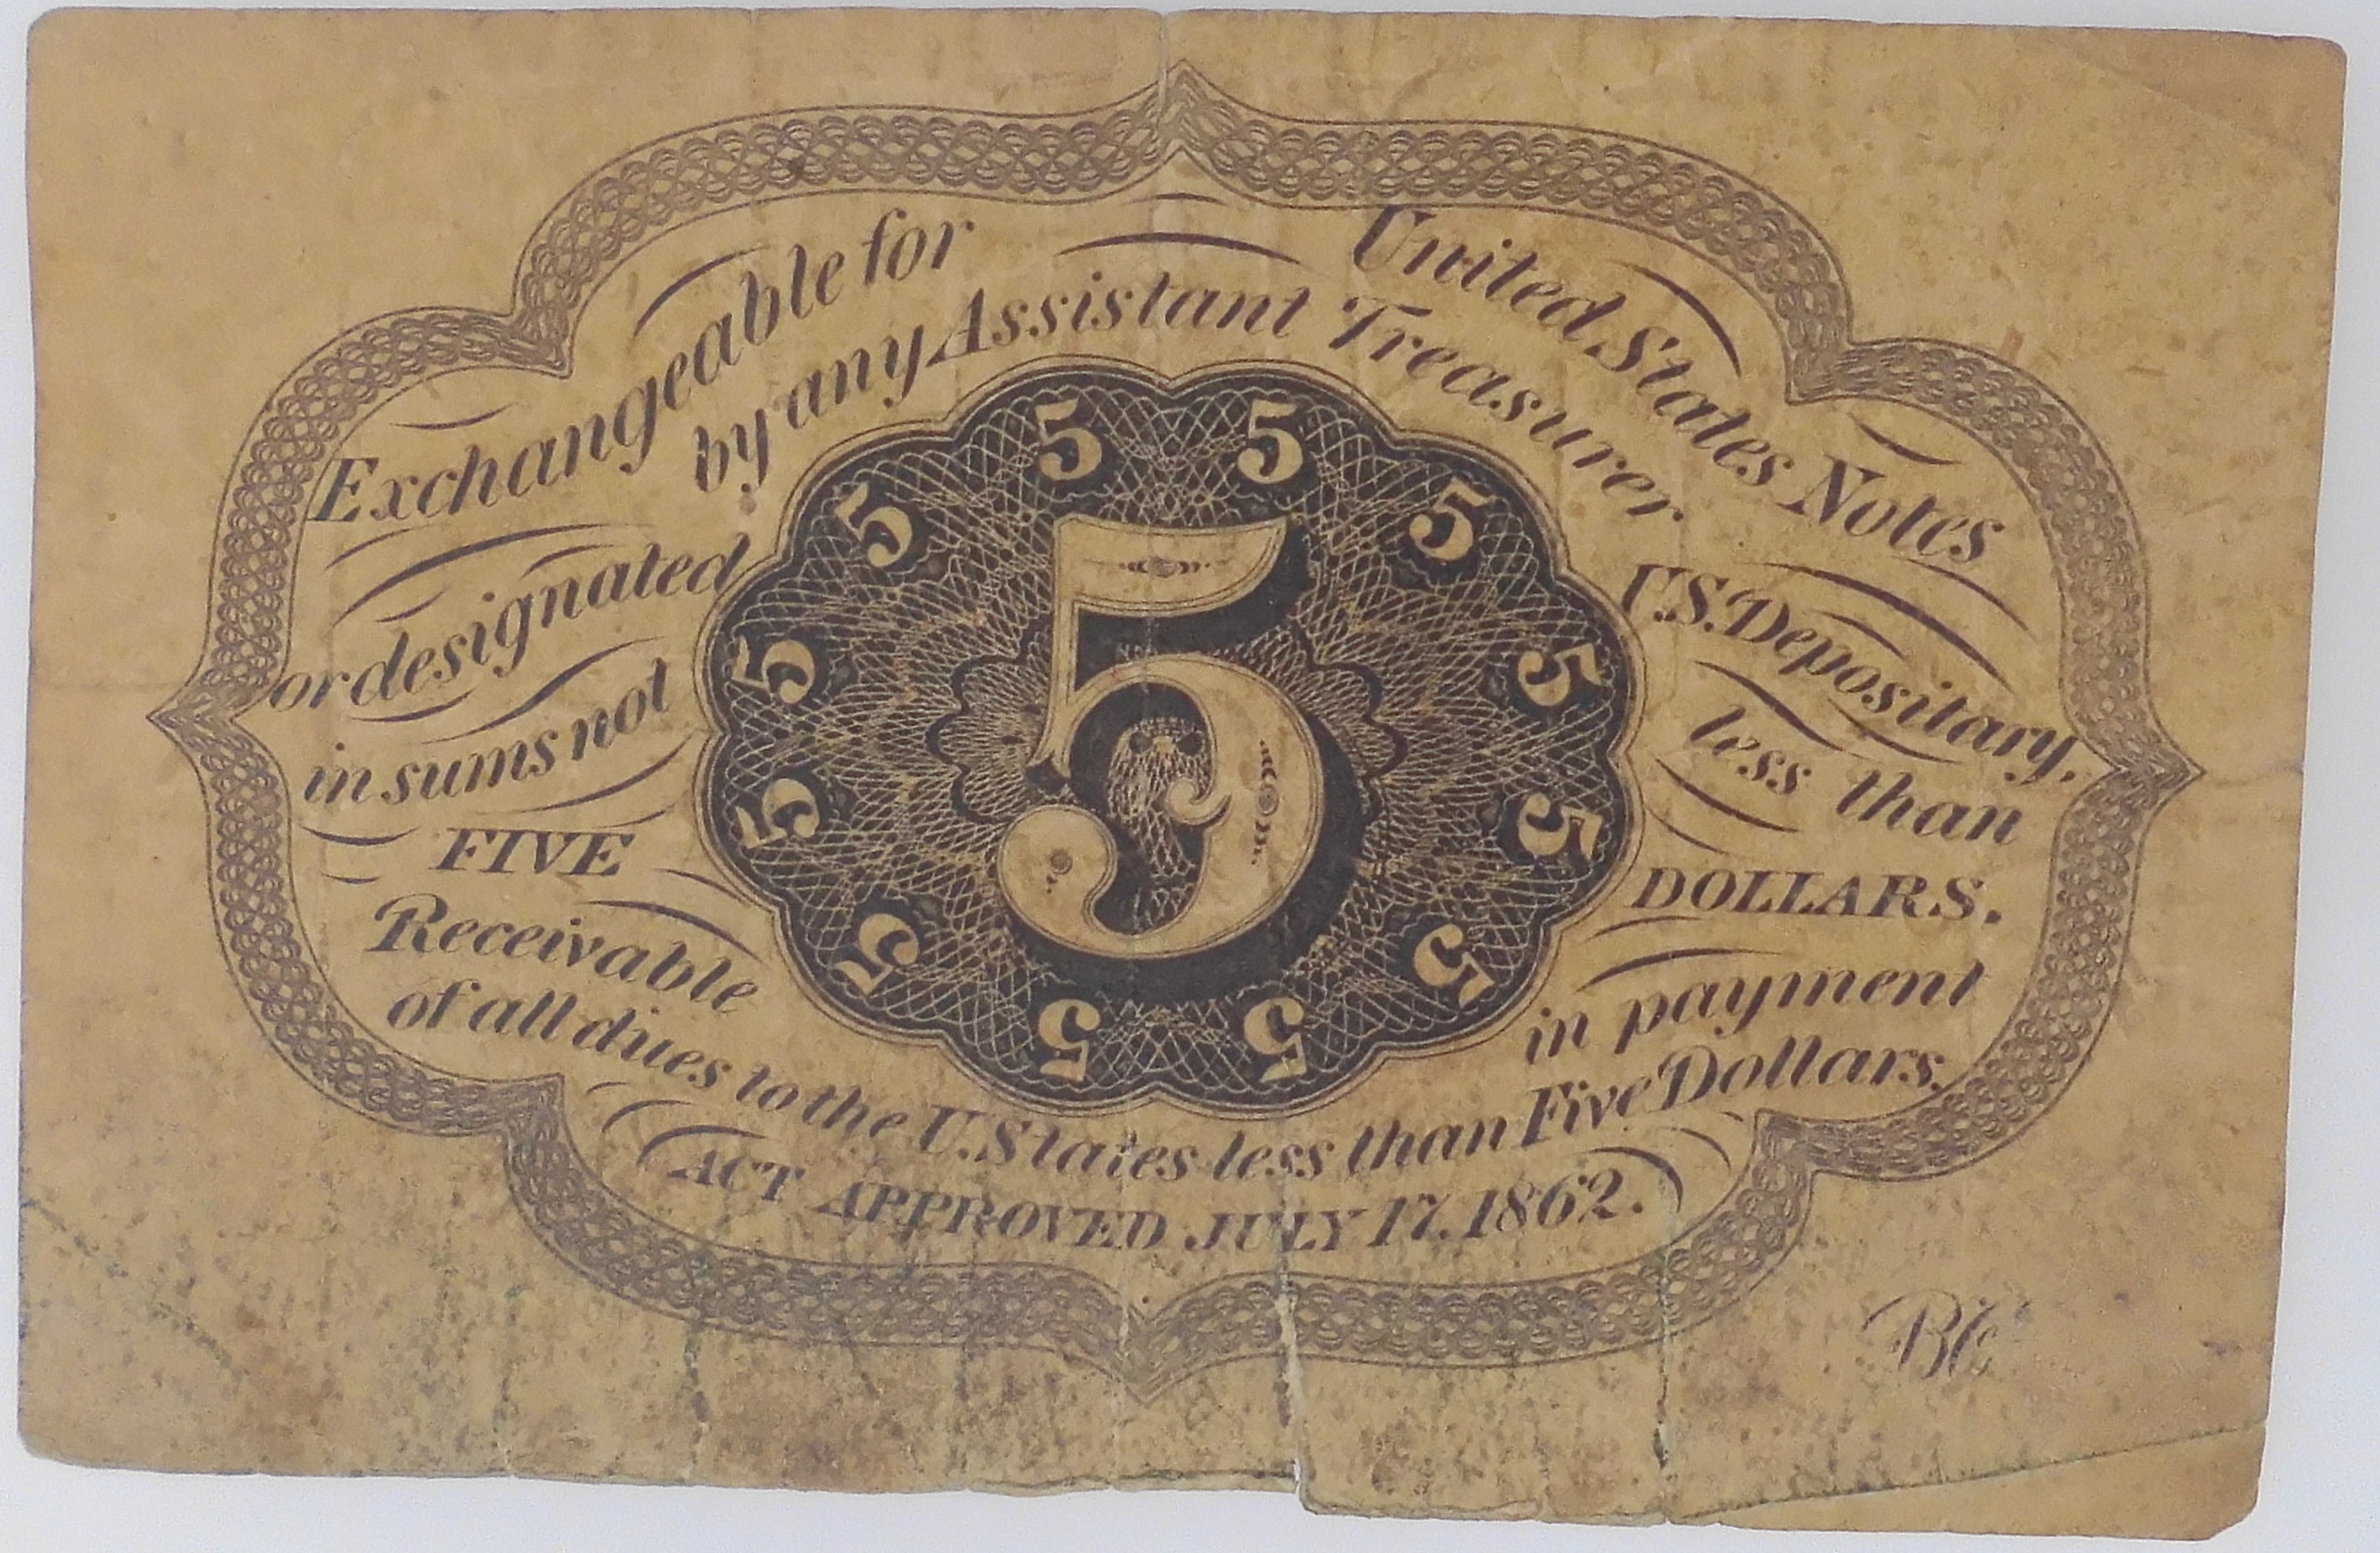 Exchangeable for United States Notes
by any Assistant Treasurer
or designated U.S. Depositary,
in sums not less than
FIVE DOLLARS.
Receivable in payment
of all dues to the U. States less than Five Dollars.
ACT APPROVED JULY 17, 1862.
5 5
5 5
5
5 5
5 5
5 5
5 5